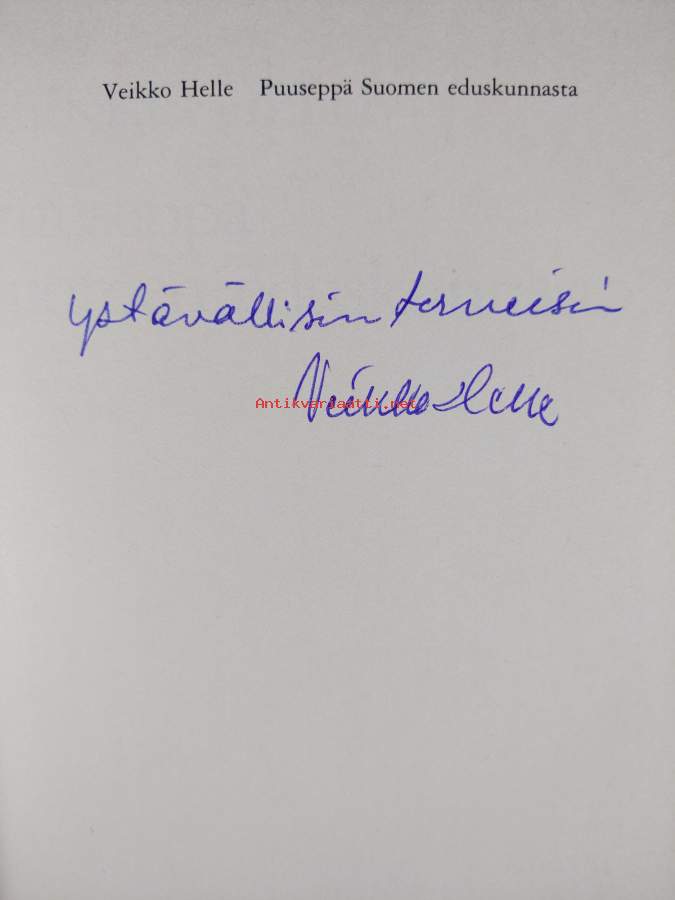 Veikko Helle Puuseppä Suomen eduskunnasta
ystävällisin terveisin
Veikko Helle
Antikvariaatti.net